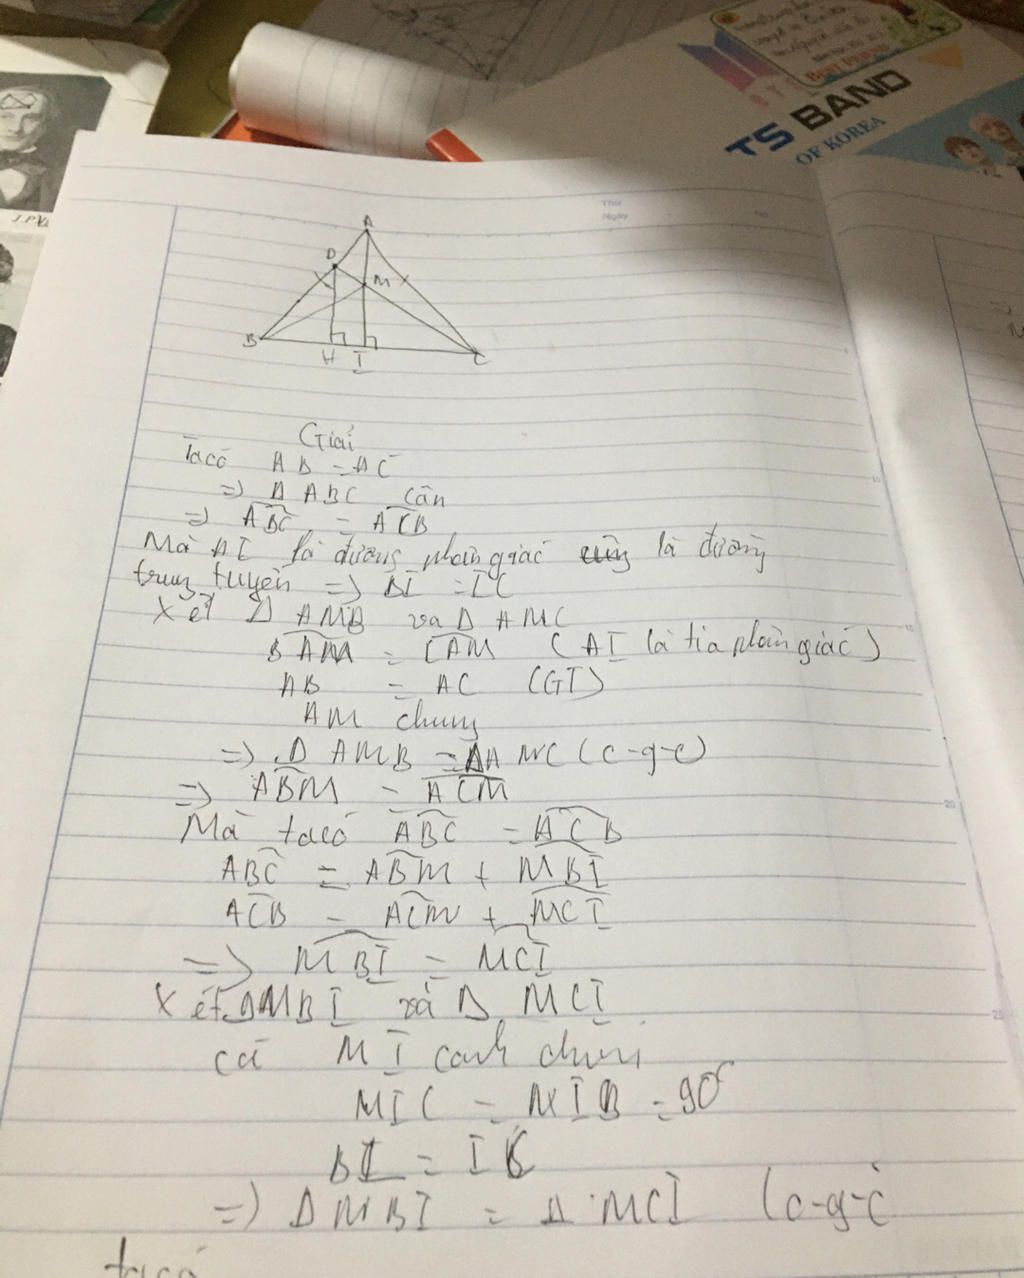 BEST
TS BAND
OF KOREA
J.P
Thứ
Ngày
A
D
M
B
H I
C
Giải
Ta có AB = AC
=> Δ ABC cân
=> ABC = ACB
Mà AI là đường phân giác cũng là đường
trung tuyến => BI = IC
Xét Δ AMB và Δ AMC
BAM = CAM (AI là tia phân giác)
AB = AC (GT)
AM chung
=> Δ AMB = ΔAMC (c-g-c)
=> ABM = ACM
Mà ta có ABC = ACB
ABC = ABM + MBI
ACB = ACM + MCI
=> MBI = MCI
Xét ΔMBI và Δ MCI
có MI cạnh chung
MIC = MIB = 90°
BI = IC
=> Δ MBI = Δ MCI (c-g-c
ta có
10
15
20
25